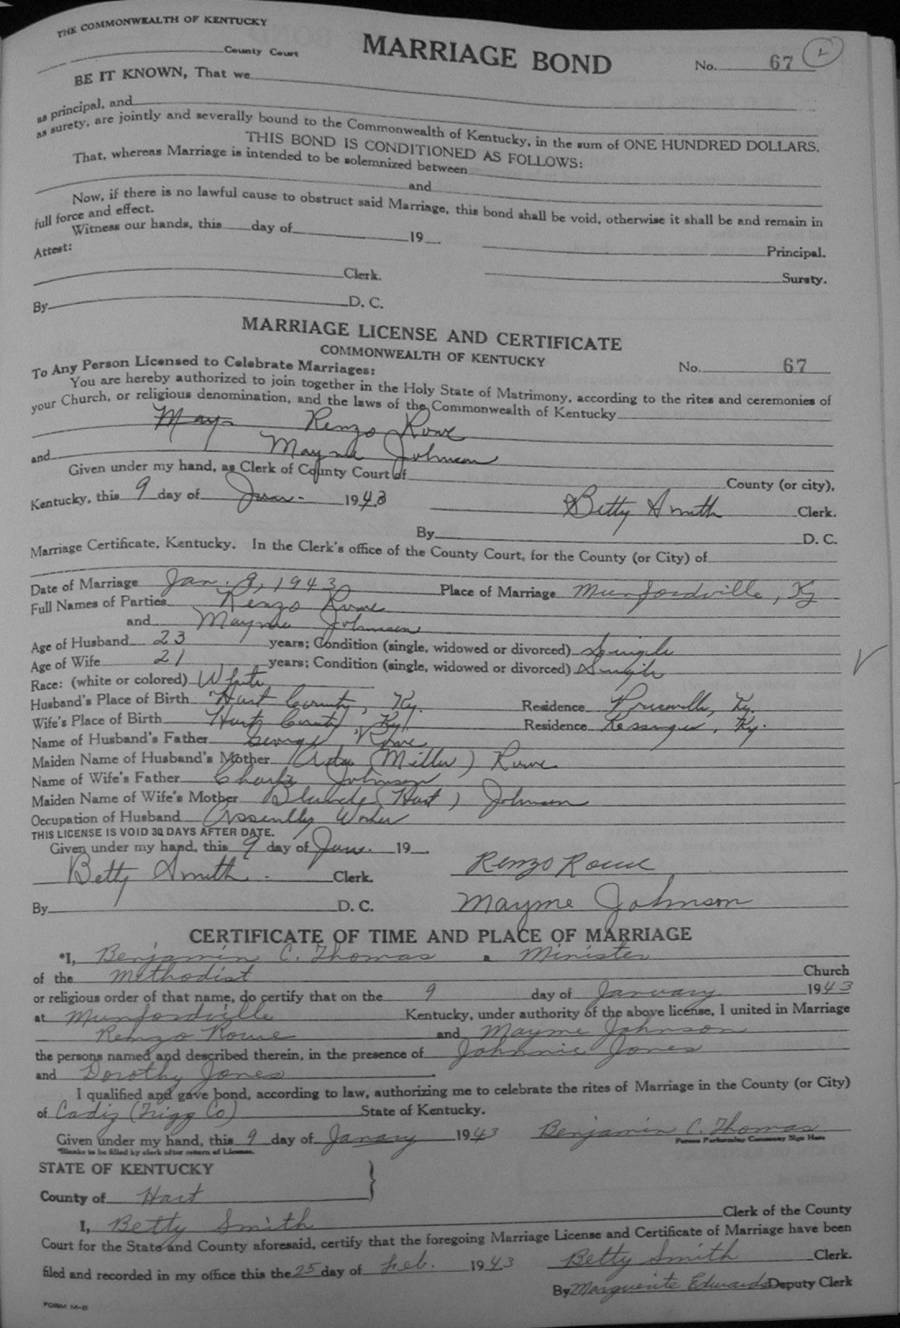 THE COMMONWEALTH OF KENTUCKY
MARRIAGE BOND
County Court
No. 67
2
BE IT KNOWN, That we
as principal, and
as surety, are jointly and severally bound to the Commonwealth of Kentucky, in the sum of ONE HUNDRED DOLLARS.
THIS BOND IS CONDITIONED AS FOLLOWS:
That, whereas Marriage is intended to be solemnized between
and
Now, if there is no lawful cause to obstruct said Marriage, this bond shall be void, otherwise it shall be and remain in
full force and effect.
Witness our hands, this day of 19
Principal.
Attest:
Clerk.
Surety.
By D. C.
MARRIAGE LICENSE AND CERTIFICATE
COMMONWEALTH OF KENTUCKY
No. 67
To Any Person Licensed to Celebrate Marriages:
You are hereby authorized to join together in the Holy State of Matrimony, according to the rites and ceremonies of
your Church, or religious denomination, and the laws of the Commonwealth of Kentucky
Renzo Rowe
and Mayme Johnson
Given under my hand, as Clerk of County Court of County (or city),
Kentucky, this 9 day of Jan. 1943 Betty Smith Clerk.
By D. C.
Marriage Certificate, Kentucky. In the Clerk's office of the County Court, for the County (or City) of
Date of Marriage Jan. 9, 1943 Place of Marriage Munfordville, Ky
Full Names of Parties Renzo Rowe
and Mayme Johnson
Age of Husband 23 years; Condition (single, widowed or divorced) Single
Age of Wife 21 years; Condition (single, widowed or divorced) Single
Race: (white or colored) White
Husband's Place of Birth Hart County, Ky. Residence Ky.
Wife's Place of Birth Hart County Ky Residence Ky.
Name of Husband's Father George Rowe
Maiden Name of Husband's Mother (Miller) Rowe
Name of Wife's Father Charlie Johnson
Maiden Name of Wife's Mother Blanche (Hart) Johnson
Occupation of Husband Assembly Worker
THIS LICENSE IS VOID 30 DAYS AFTER DATE.
Given under my hand, this 9 day of Jan. 19
Renzo Rowe
Betty Smith. Clerk.
By D. C. Mayme Johnson
CERTIFICATE OF TIME AND PLACE OF MARRIAGE
*I, Benjamin C. Thomas a Minister
of the Methodist Church
or religious order of that name, do certify that on the 9 day of January 1943
at Munfordville Kentucky, under authority of the above license, I united in Marriage
Renzo Rowe and Mayme Johnson
the persons named and described therein, in the presence of Johnnie Jones
and Dorothy Jones
I qualified and gave bond, according to law, authorizing me to celebrate the rites of Marriage in the County (or City)
of Cadiz (Trigg Co) State of Kentucky.
Given under my hand, this 9 day of January 1943 Benjamin C. Thomas
*Blanks to be filled by clerk after return of License. Person Performing Ceremony Sign Here
STATE OF KENTUCKY
County of Hart
I, Betty Smith Clerk of the County
Court for the State and County aforesaid, certify that the foregoing Marriage License and Certificate of Marriage have been
filed and recorded in my office this the 25 day of Feb. 1943 Betty Smith Clerk.
By Marguerite Edwards Deputy Clerk
FORM M-B